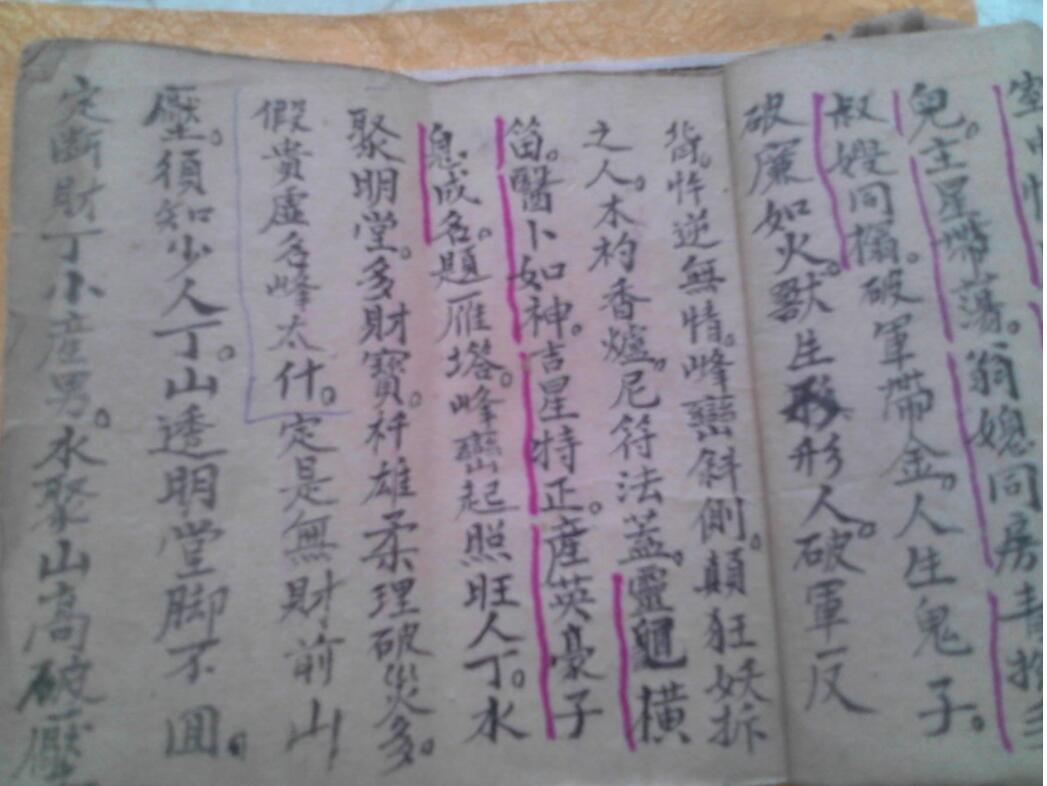 兒。主星帶蕩。翁媳同房
叔嫂同榻。破軍帶金。人生鬼子。
破廉如火。獸生形人。破軍反
背。忤逆無情。峰巒斜側。顛狂妖拆
之人。木杓香爐。尼符法蓋。靈龜橫
笛。醫卜如神。吉星特正。產英豪子
息成名。題雁塔。峰巒起照旺人丁。水
聚明堂。多財寶。秆雄柔理破災多。
假貴虛名峰太什。定是無財前山
壓。須知少人丁。山透明堂脚不圓。
定斷財丁小産男。水聚山高破壓